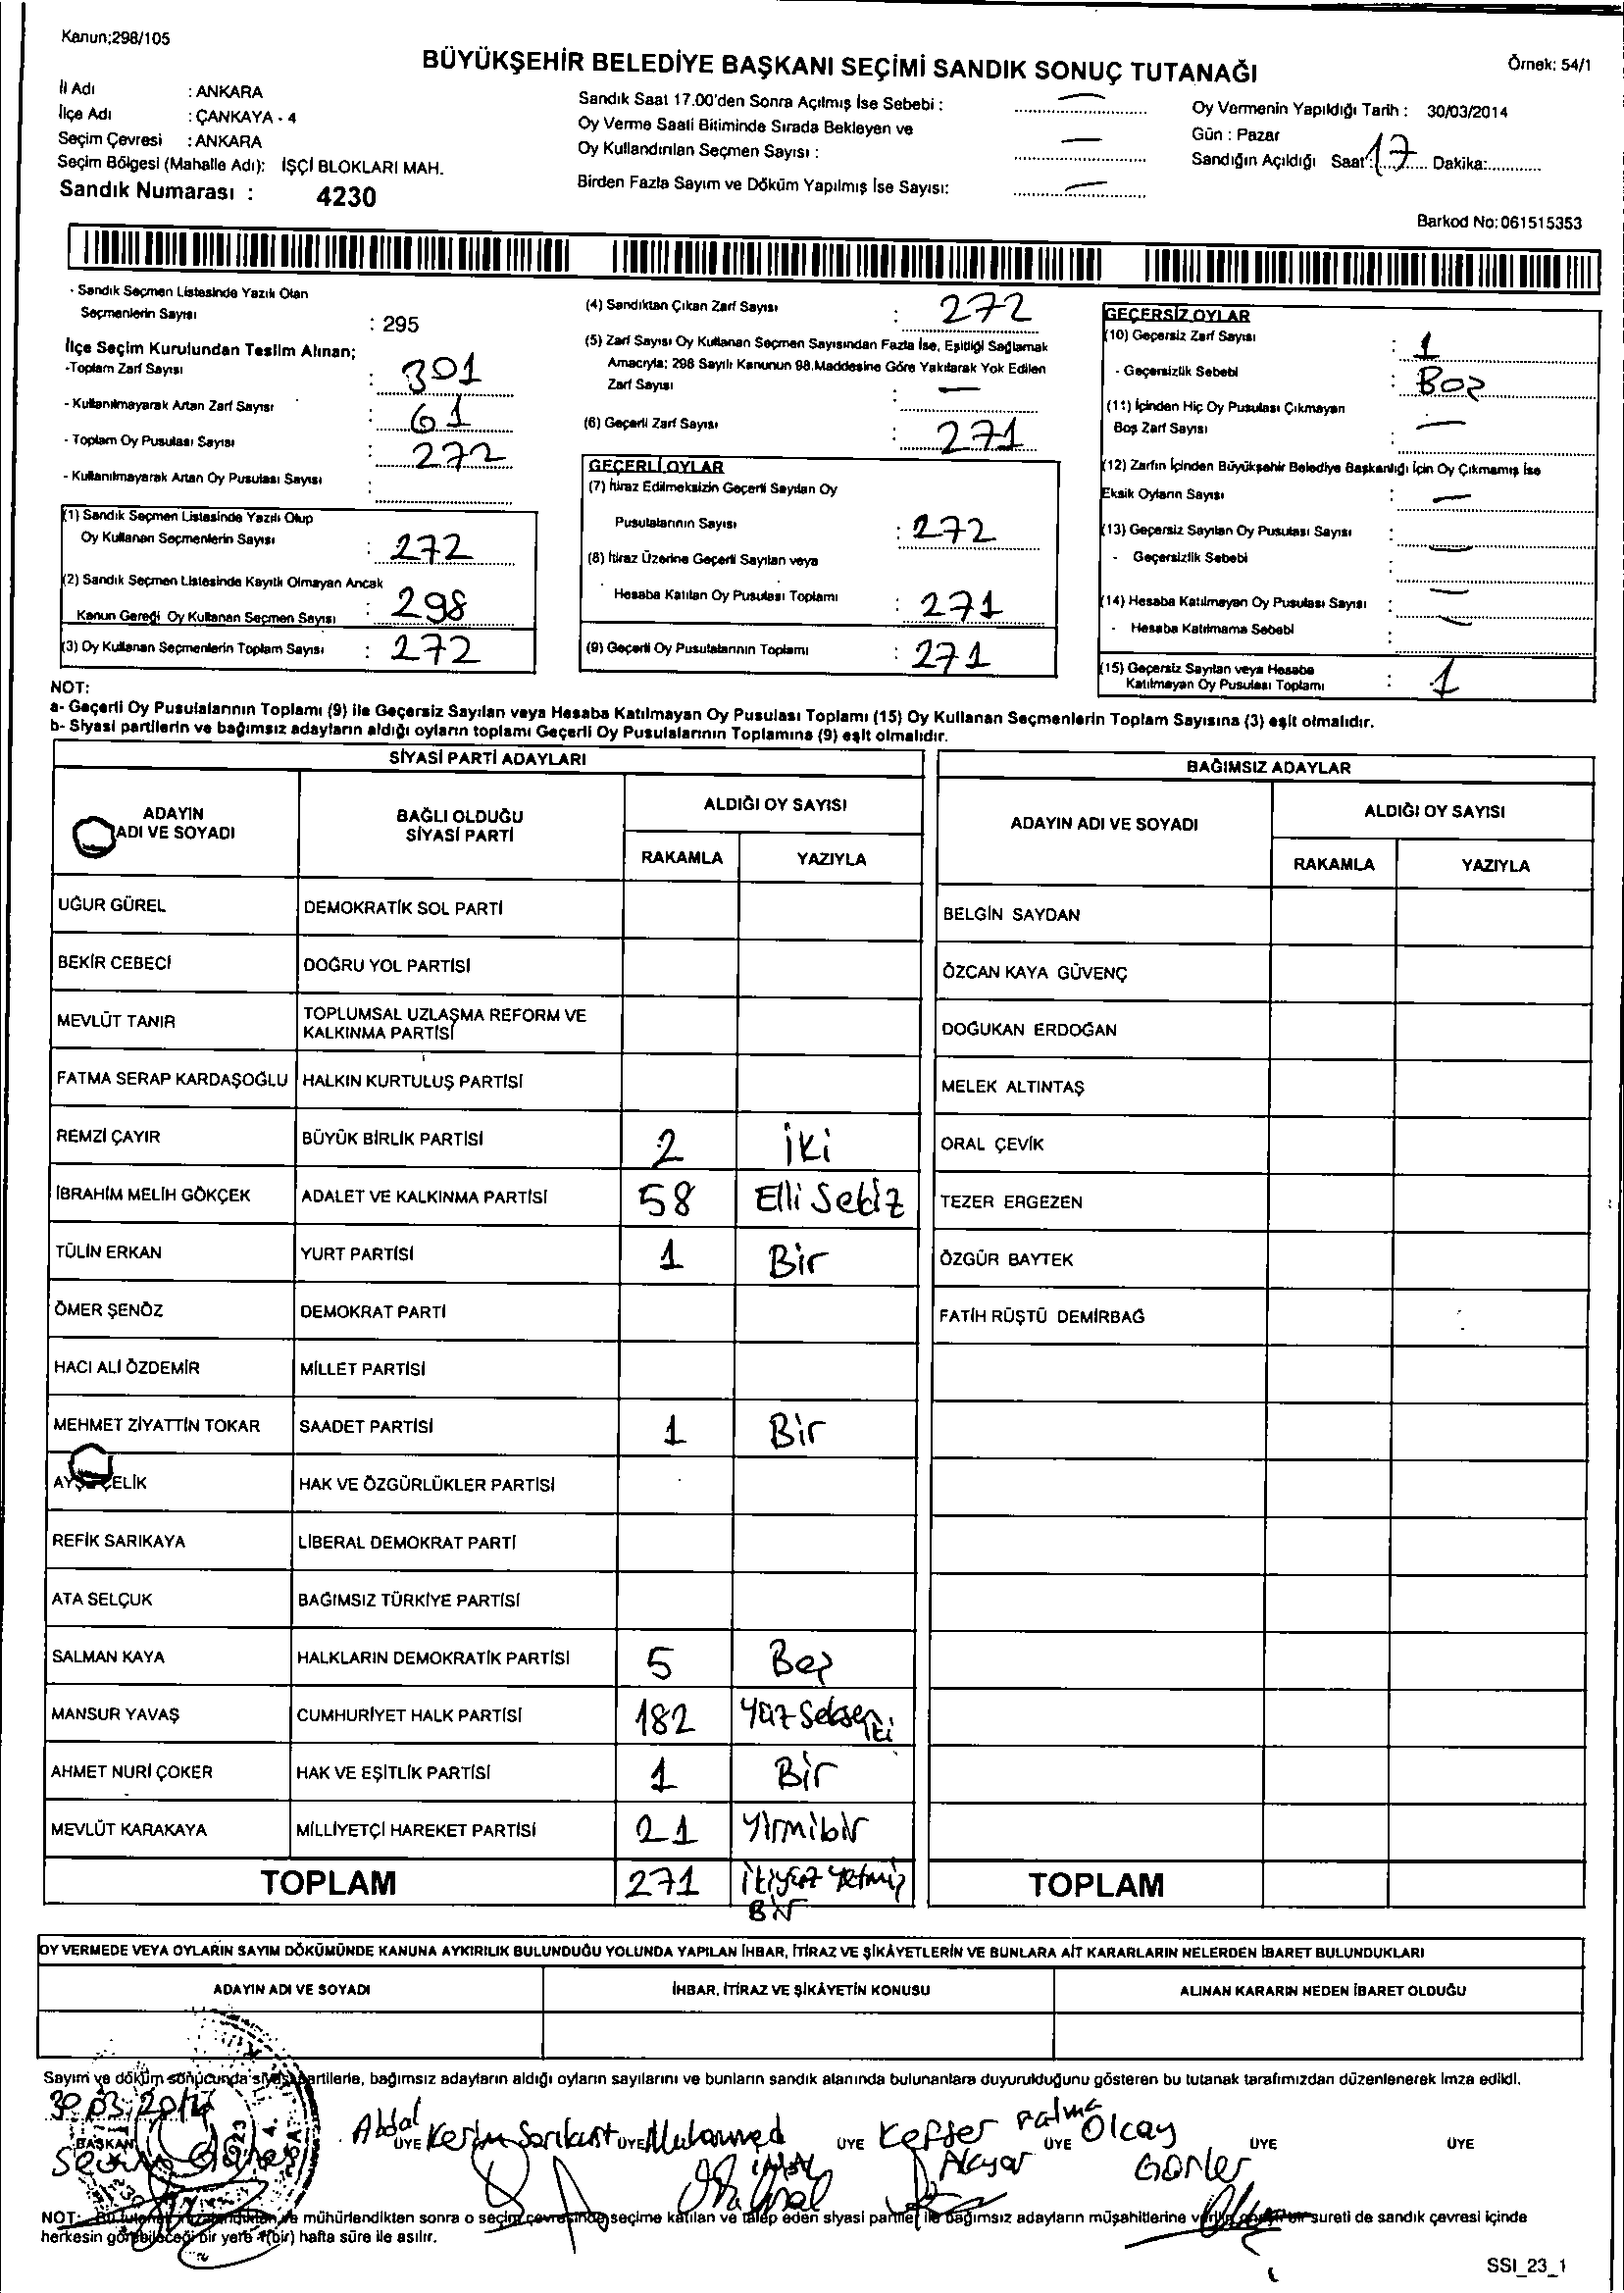 Kanun;298/105
BÜYÜKŞEHİR BELEDİYE BAŞKANI SEÇİMİ SANDIK SONUÇ TUTANAĞI
Örnek: 54/1
İl Adı : ANKARA
İlçe Adı : ÇANKAYA - 4
Seçim Çevresi : ANKARA
Seçim Bölgesi (Mahalle Adı): İŞÇİ BLOKLARI MAH.
Sandık Numarası : 4230
Sandık Saat 17.00'den Sonra Açılmış İse Sebebi : —
Oy Verme Saati Bitiminde Sırada Bekleyen ve
Oy Kullandırılan Seçmen Sayısı : —
Birden Fazla Sayım ve Döküm Yapılmış İse Sayısı: —
Oy Vermenin Yapıldığı Tarih : 30/03/2014
Gün : Pazar
Sandığın Açıldığı Saat: 17 Dakika:
Barkod No: 061515353
- Sandık Seçmen Listesinde Yazılı Olan
Seçmenlerin Sayısı : 295
İlçe Seçim Kurulundan Teslim Alınan;
-Toplam Zarf Sayısı : 301
- Kullanılmayarak Artan Zarf Sayısı : 61
- Toplam Oy Pusulası Sayısı : 272
- Kullanılmayarak Artan Oy Pusulası Sayısı :
(1) Sandık Seçmen Listesinde Yazılı Olup
Oy Kullanan Seçmenlerin Sayısı : 272
(2) Sandık Seçmen Listesinde Kayıtlı Olmayan Ancak
Kanun Gereği Oy Kullanan Seçmen Sayısı : 298
(3) Oy Kullanan Seçmenlerin Toplam Sayısı : 272
(4) Sandıktan Çıkan Zarf Sayısı : 272
(5) Zarf Sayısı Oy Kullanan Seçmen Sayısından Fazla İse, Eşitliği Sağlamak
Amacıyla; 298 Sayılı Kanunun 98.Maddesine Göre Yakılarak Yok Edilen
Zarf Sayısı : —
(6) Geçerli Zarf Sayısı : 271
GEÇERLİ OYLAR
(7) İtiraz Edilmeksizin Geçerli Sayılan Oy
Pusulalarının Sayısı : 272
(8) İtiraz Üzerine Geçerli Sayılan veya
Hesaba Katılan Oy Pusulası Toplamı : 271
(9) Geçerli Oy Pusulalarının Toplamı : 271
GEÇERSİZ OYLAR
(10) Geçersiz Zarf Sayısı : 1
- Geçersizlik Sebebi : Boş
(11) İçinden Hiç Oy Pusulası Çıkmayan
Boş Zarf Sayısı : —
(12) Zarfın İçinden Büyükşehir Belediye Başkanlığı İçin Oy Çıkmamış İse
Eksik Oyların Sayısı : —
(13) Geçersiz Sayılan Oy Pusulası Sayısı : —
- Geçersizlik Sebebi
(14) Hesaba Katılmayan Oy Pusulası Sayısı : —
- Hesaba Katılmama Sebebi : —
(15) Geçersiz Sayılan veya Hesaba
Katılmayan Oy Pusulası Toplamı : 1
NOT:
a- Geçerli Oy Pusulalarının Toplamı (9) ile Geçersiz Sayılan veya Hesaba Katılmayan Oy Pusulası Toplamı (15) Oy Kullanan Seçmenlerin Toplam Sayısına (3) eşit olmalıdır.
b- Siyasi partilerin ve bağımsız adayların aldığı oyların toplamı Geçerli Oy Pusulalarının Toplamına (9) eşit olmalıdır.
SİYASİ PARTİ ADAYLARI
ADAYIN ADI VE SOYADI
BAĞLI OLDUĞU SİYASİ PARTİ
ALDIĞI OY SAYISI
RAKAMLA YAZIYLA
UĞUR GÜREL DEMOKRATİK SOL PARTİ
BEKİR CEBECİ DOĞRU YOL PARTİSİ
MEVLÜT TANIR TOPLUMSAL UZLAŞMA REFORM VE
KALKINMA PARTİSİ
FATMA SERAP KARDAŞOĞLU HALKIN KURTULUŞ PARTİSİ
REMZİ ÇAYIR BÜYÜK BİRLİK PARTİSİ 2 İki
İBRAHİM MELİH GÖKÇEK ADALET VE KALKINMA PARTİSİ 58 Elli Sekiz
TÜLİN ERKAN YURT PARTİSİ 1 Bir
ÖMER ŞENÖZ DEMOKRAT PARTİ
HACI ALİ ÖZDEMİR MİLLET PARTİSİ
MEHMET ZİYATTİN TOKAR SAADET PARTİSİ 1 Bir
ELİK HAK VE ÖZGÜRLÜKLER PARTİSİ
REFİK SARIKAYA LİBERAL DEMOKRAT PARTİ
ATA SELÇUK BAĞIMSIZ TÜRKİYE PARTİSİ
SALMAN KAYA HALKLARIN DEMOKRATİK PARTİSİ 5 Beş
MANSUR YAVAŞ CUMHURİYET HALK PARTİSİ 182 Yüz Seksen iki
AHMET NURİ ÇOKER HAK VE EŞİTLİK PARTİSİ 1 Bir
MEVLÜT KARAKAYA MİLLİYETÇİ HAREKET PARTİSİ 21 Yirmibir
TOPLAM 271 ikiyüz Yetmiş Bir
BAĞIMSIZ ADAYLAR
ADAYIN ADI VE SOYADI
ALDIĞI OY SAYISI
RAKAMLA YAZIYLA
BELGİN SAYDAN
ÖZCAN KAYA GÜVENÇ
DOĞUKAN ERDOĞAN
MELEK ALTINTAŞ
ORAL ÇEVİK
TEZER ERGEZEN
ÖZGÜR BAYTEK
FATİH RÜŞTÜ DEMİRBAĞ
TOPLAM
OY VERMEDE VEYA OYLARIN SAYIM DÖKÜMÜNDE KANUNA AYKIRILIK BULUNDUĞU YOLUNDA YAPILAN İHBAR, İTİRAZ VE ŞİKÂYETLERİN VE BUNLARA AİT KARARLARIN NELERDEN İBARET BULUNDUKLARI
ADAYIN ADI VE SOYADI İHBAR, İTİRAZ VE ŞİKÂYETİN KONUSU ALINAN KARARIN NEDEN İBARET OLDUĞU
Sayım ve döküm sonucunda siyasi partilerle, bağımsız adayların aldığı oyların sayılarını ve bunların sandık alanında bulunanlara duyurulduğunu gösteren bu tutanak tarafımızdan düzenlenerek imza edildi.
30.03.2014
BAŞKAN
ÜYE ÜYE ÜYE ÜYE ÜYE ÜYE
Muhammed
Fatma Olcay
NOT: mühürlendikten sonra o seçim çevresinde seçime katılan ve talep eden siyasi partiler ile bağımsız adayların müşahitlerine sureti de sandık çevresi içinde
herkesin görebileceği bir yere 1(bir) hafta süre ile asılır.
SSI_23_1